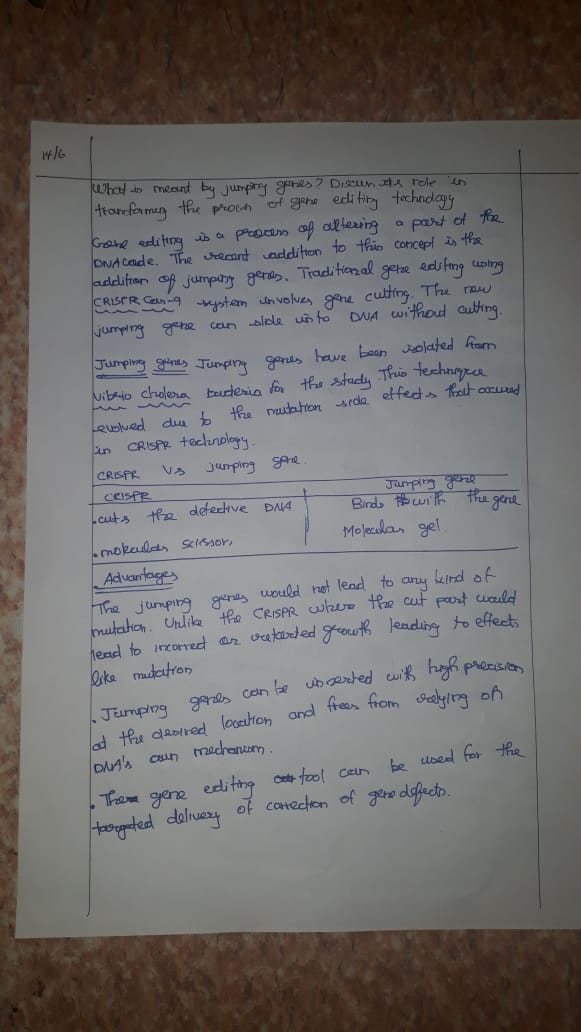 14/6
What is meant by jumping genes? Discuss its role in
transforming the process of gene editing technology
Gene editing is a process of altering a part of the
DNA code. The recent addition to this concept is the
addition of jumping genes. Traditional gene editing using
CRISPR Cas-9 system involves gene cutting. The new
jumping gene can slide into DNA without cutting.
Jumping genes Jumping genes have been isolated from
Vibrio cholera bacteria for the study. This technique
evolved due to the mutation side effects that occured
in CRISPR technology.
CRISPR Vs jumping gene.
CRISPR Jumping gene
. cuts the defective DNA Binds with the gene
. molecular scissor, Molecular gel.
. Advantages
The jumping genes would not lead to any kind of
mutation. Unlike the CRISPR where the cut part would
lead to incorrect or retarted growth leading to effects
like mutation
. Jumping genes can be inserted with high precision
at the desired location and frees from relying on
DNA's own mechanism.
. gene editing tool can be used for the
targeted delivery of correction of gene defects.